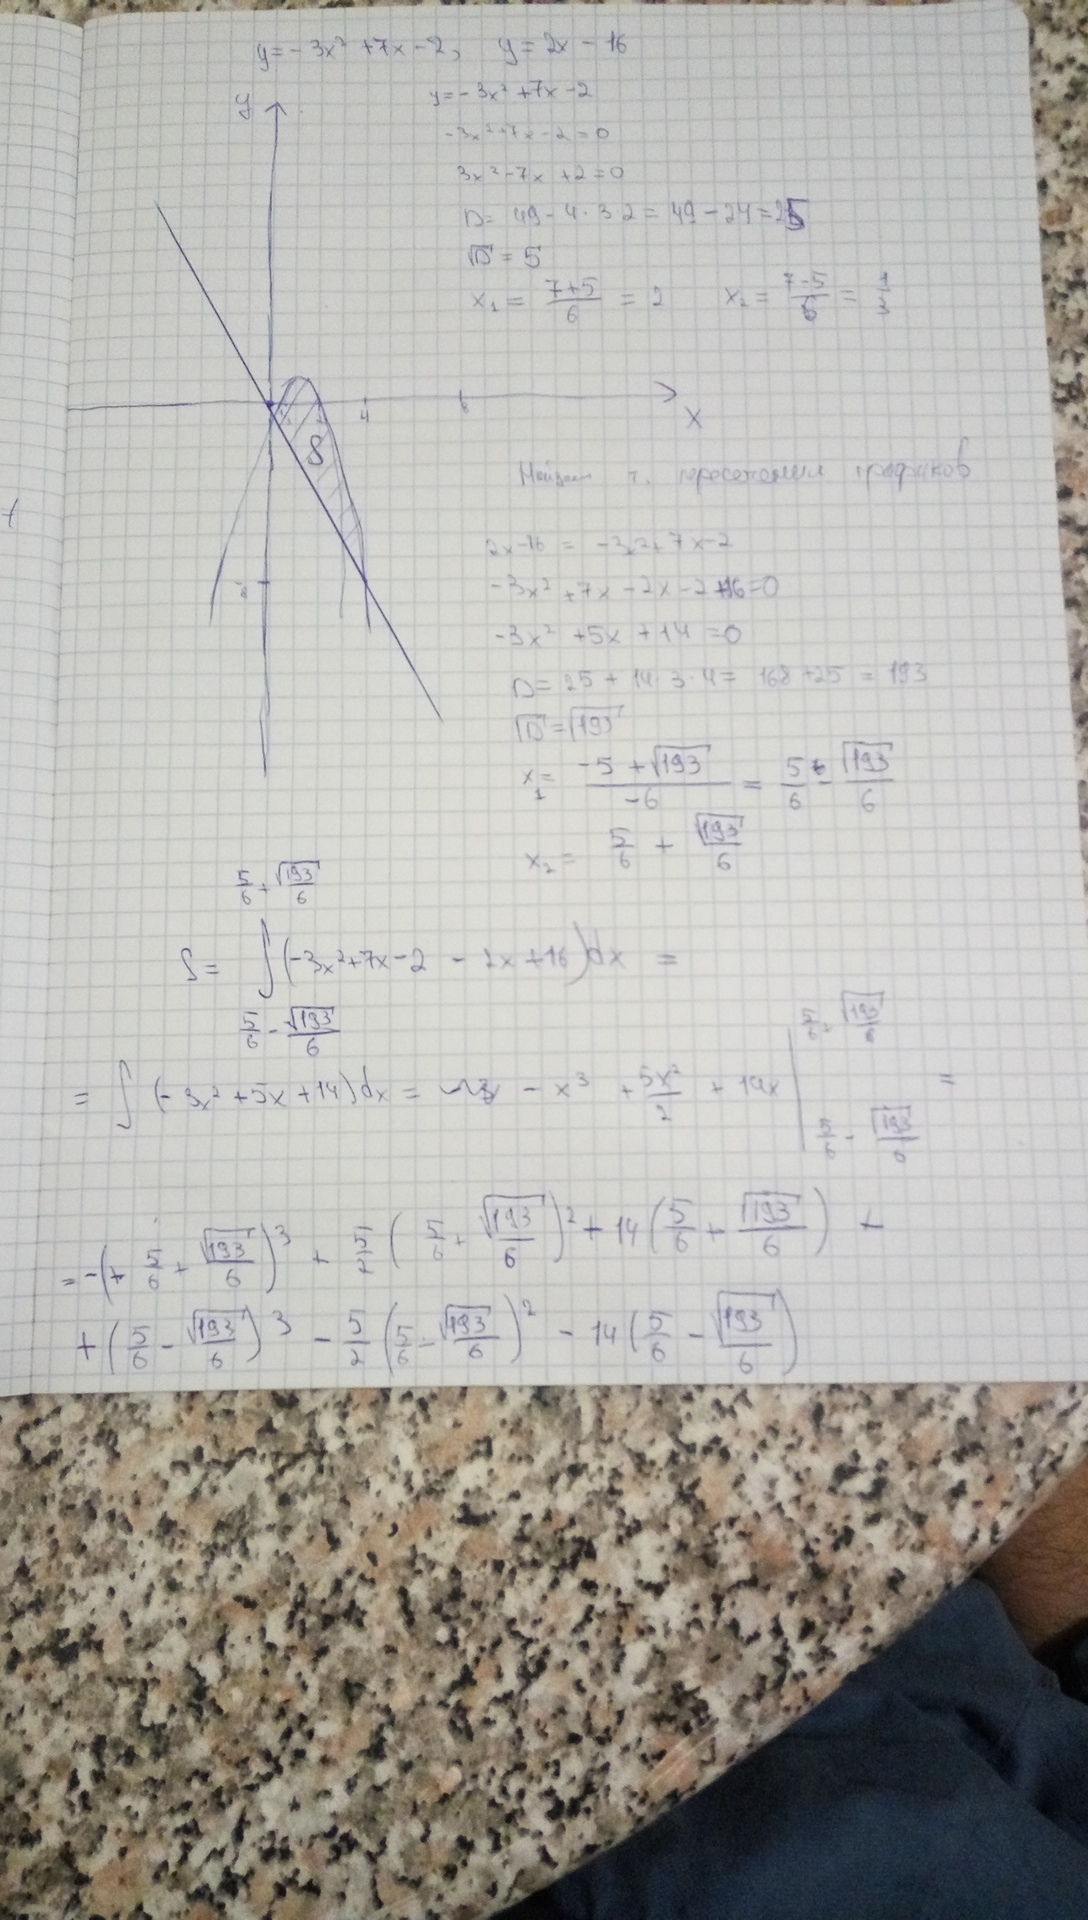 y = -3x² + 7x - 2, y = 2x - 16
y
y = -3x² + 7x - 2
-3x² + 7x - 2 = 0
3x² - 7x + 2 = 0
D = 49 - 4 · 3 · 2 = 49 - 24 = 25
√D = 5
x₁ = (7+5)/6 = 2 x₂ = (7-5)/6 = 1/3
4
x
S
Найдем т. пересечения графиков
2x - 16 = -3x² + 7x - 2
-3x² + 7x - 2x - 2 + 16 = 0
-3x² + 5x + 14 = 0
D = 25 + 14 · 3 · 4 = 168 + 25 = 193
√D = √193
x₁ = (-5 + √193)/-6 = 5/6 - √193/6
x₂ = 5/6 + √193/6
5/6 + √193/6
S = ∫ (-3x² + 7x - 2 - 2x + 16) dx =
5/6 - √193/6
5/6 + √193/6
= ∫ (-3x² + 5x + 14) dx = - x³ + 5x²/2 + 14x | =
5/6 - √193/6
= -(+ 5/6 + √193/6)³ + 5/2 (5/6 + √193/6)² + 14 (5/6 + √193/6) +
+ (5/6 - √193/6)³ - 5/2 (5/6 - √193/6)² - 14 (5/6 - √193/6)